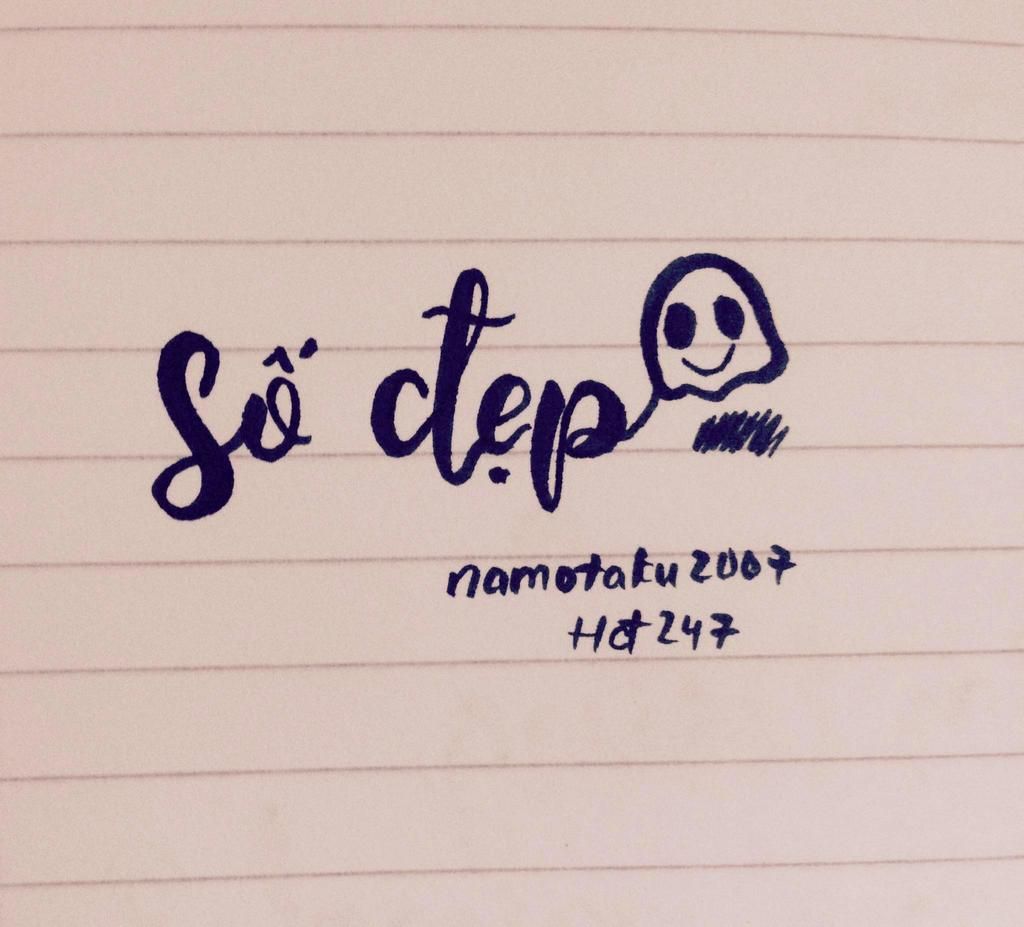 Số đẹp
namotaku2007
Hđ247